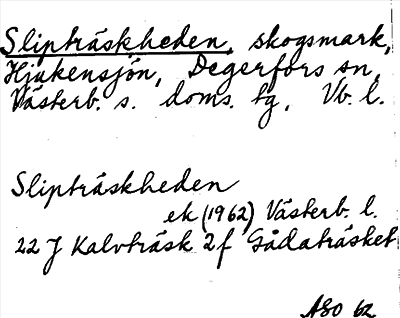 Slipträskheden, skogsmark,
Hjukensjön, Degerfors sn,
Västerb. s. doms. tg, Vb. l.
Slipträskheden
ek (1962) Västerb. l.
22 J Kalvträsk 2f Gådaträsket
ASO 62